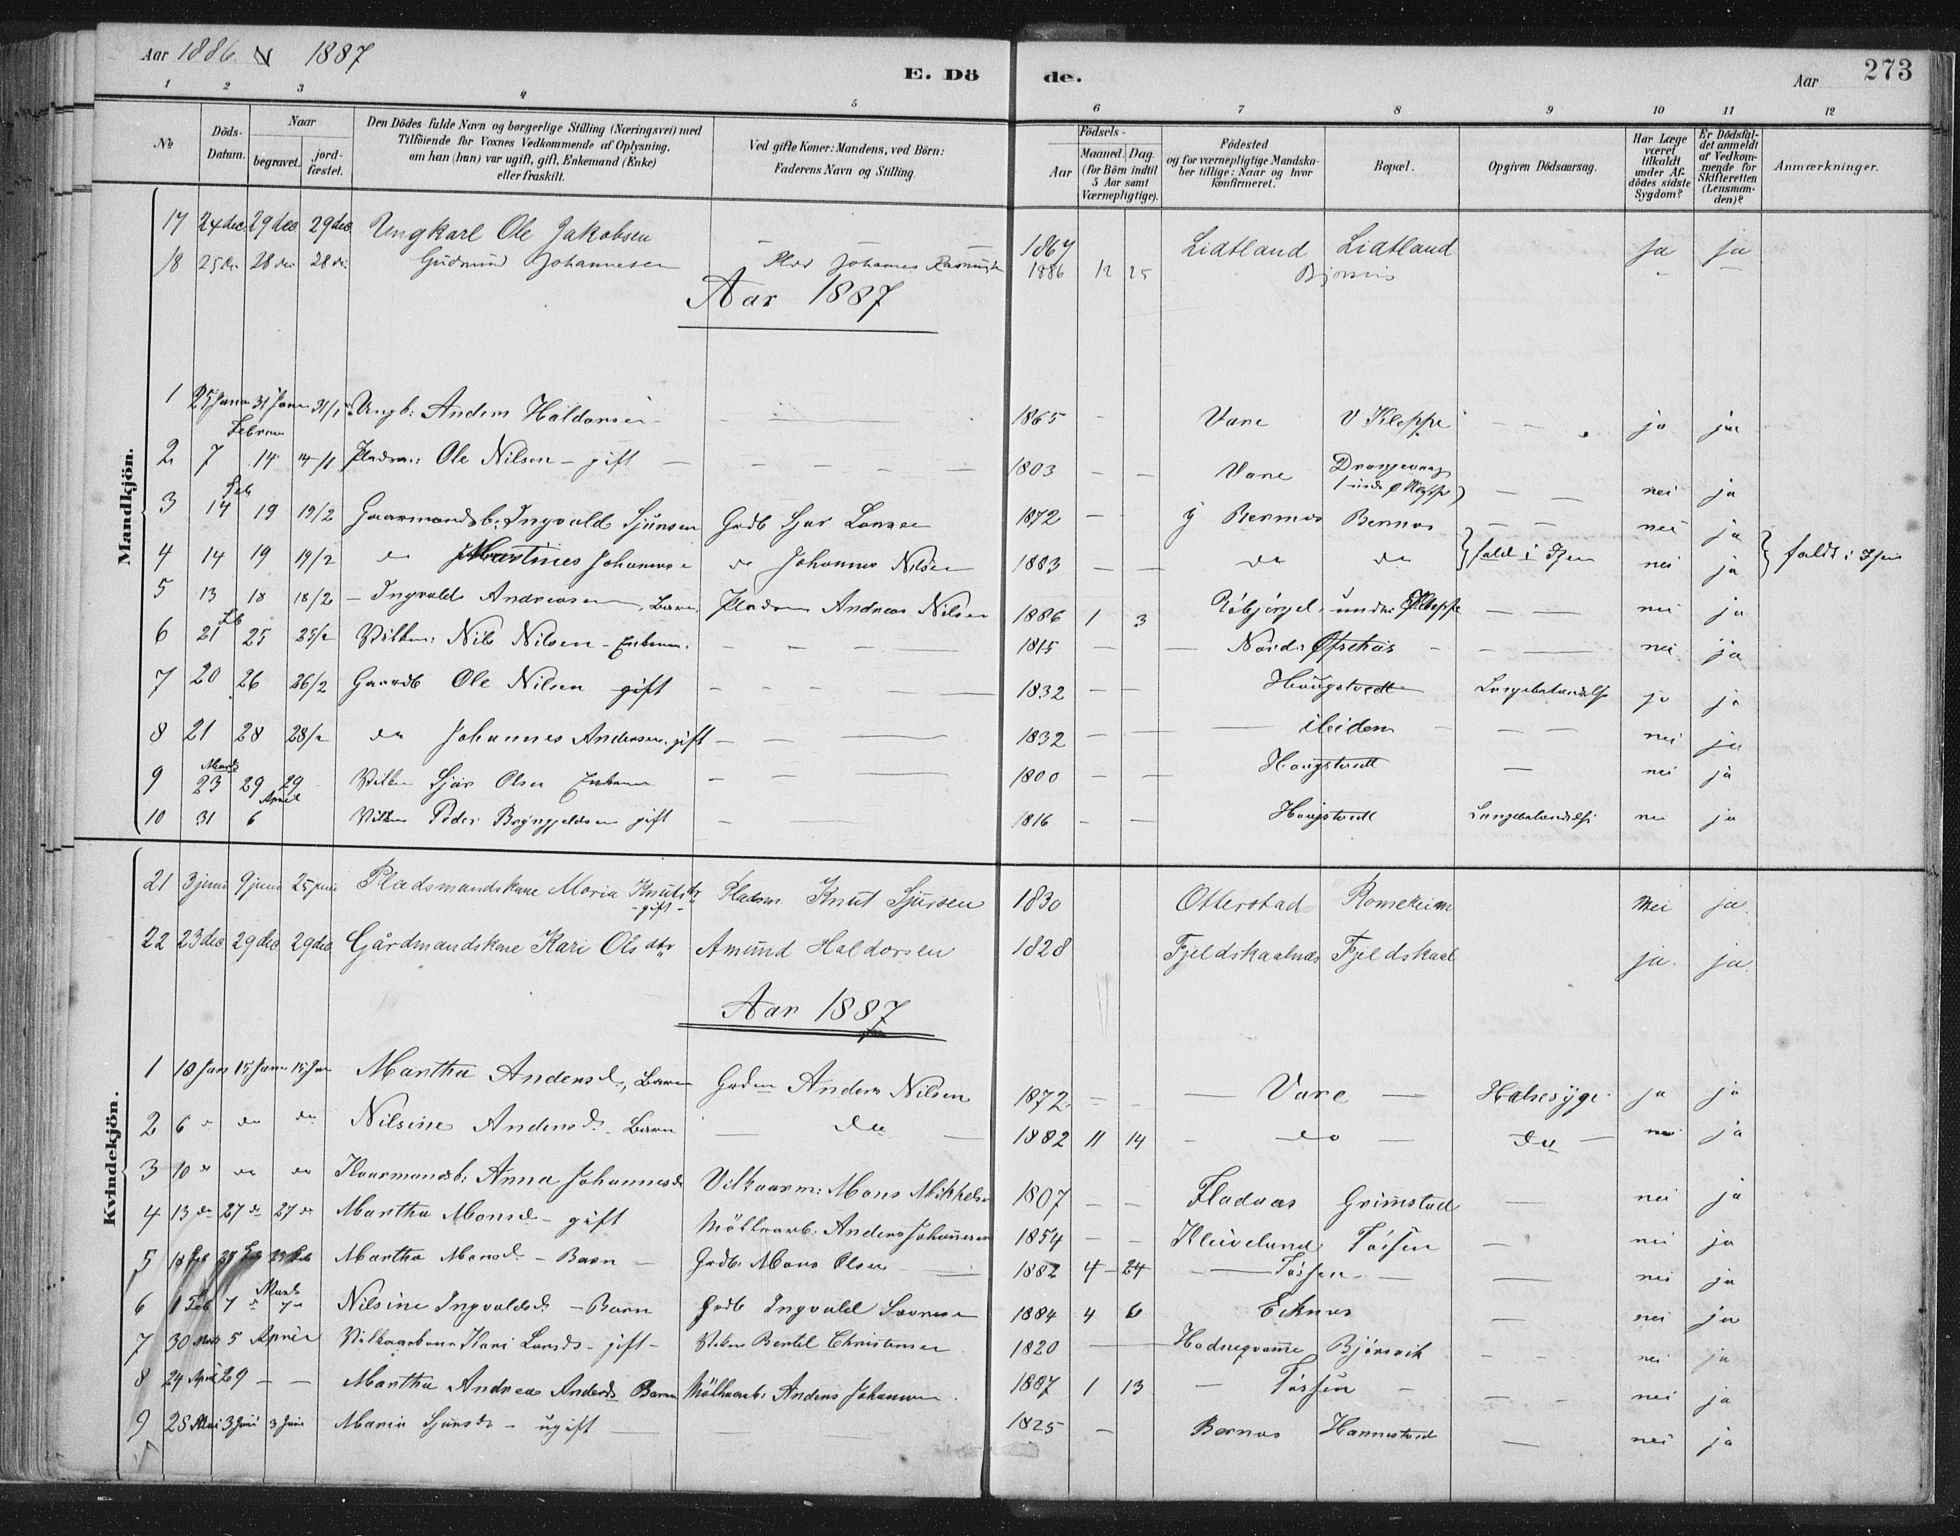 Aar 1886 1887 E. Dö de. Aar 273
1 2 3 4 5 6 7 8 9 10 11 12
No Döds-Datum. Naar begravet. jord-fæstet. Den Dödes fulde Navn og borgerlige Stilling (Næringsvei) med Tilföiende for Voxnes Vedkommende af Oplysning, om han (hun) var ugift, gift, Enkemand (Enke) eller fraskilt. Ved gifte Koner: Mandens, ved Börn: Faderens Navn og Stilling. Födsels- Aar Maaned. Dag. (for Börn indtil 5 Aar samt Værnepligtige). Födested og for værnepligtige Mandska-ber tillige: Naar og hvor konfirmeret. Bopæl. Opgiven Dödsaarsag. Har Læge været tilkaldt under Af-dödes sidste Sygdom? Er Dödsfal-det anmeldt af Vedkom-mende for Skifteretten (Lensman-den)? Anmærkninger.
Mandkjön.
17 24 dec 29 dec 29 dec Ungkarl Ole Jakobsen 1867 Lidtland Lidtland ja ja
18 25 de 28 de 28 de Gudmund Johannesen Johannes 1886 12 25
Aar 1887
1 25 Janu 31 Janu 31/1 Ungk: Anders Haldorsen 1865 - - Vare V Kleppe ja ja
Februar
2 7 14 Ole Nilsen - gift 1803 - - Vare nei ja
Feb
3 14 19 19/2 Gaarmandsb: Ingvald Sjursen Grdb Sjur Larsen 1872 - - Bernes Bernes nei ja
4 14 19 19/2 do Martines Johannes do Johannes Nilsen 1883 - - do do } fald i Sjøen nei ja } faldt i Sjøen
5 13 18 18/2 - Ingvald Andreasen, Barn, Pladsm Andreas Nilsen 1886 1 3 under Kleppe nei ja
Feb
6 21 25 25/2 Vilkm: Nils Nilsen - Enkem. 1815 - nei ja
7 20 26 26/2 Gaardb Ole Nilsen gift 1832 - - Hougstvedt Lungebetændelse ja ja
8 21 28 28/2 do Johannes Andersen. gift 1832 - - ibidem nei ja
Marts
9 23 29 29 Vilkm Sjur Olsen Enkem 1800 - - Hougstvedt nei ja
April
10 31 6 Vilkm Peder Brynjeldsen gift 1816 - - Hougstvedt Lungebetændelse nei ja
Kvindekjön.
21 3 juni 9 juni 25 juni Pladsmandskone Maria Knutsdr Pladsm Knut Sjursen 1830 Otterstad Romereim Nei ja.
- gift -
22 23 dec 29 dec 29 dec Gårdmandskone Kari Olsdtr Amund Haldorsen 1828 Fjeldskaalnes Fjeldskaal ja. ja.
Aar 1887
1 10 Jan 15 Janu 15 Jan Martha Andersd., Barn Grdm Anders Nilsen 1872. - - - Vare - Halsesyge ja ja
2 6 do do Nilsine Andersd. Barn do 1882 11 14 - do - do nei ja
3 10 do do do Anna Johannesd Vilkaarm: Mons Mikkelsen 1807 - - Fladaas Grimstad nei ja
4 13 do 27 do 27 do Martha Monsd - gift Anders Johannesen 1854 - - Kleiveland Tössen nei ja
5 18 Feb Feb Martha Monsd - Barn Grdb: Mons Olsen 1882 4 24 Tössen nei ja
Marts
6 1 Feb 7 7 Nilsine Ingvaldsd - Barn Grdb Ingvald 1884 4 6 Eknes nei ja
7 30 Mar 5 April Kari Larsd - gift - Bertel Christensen 1820 Bjørsvik nei ja
8 24 April 29 - - Martha Andrea Andersd Barn Anders Johannesen 1887 1 13 - Tössen - nei ja
9 28 Mai 3 Juni 3 Juni Maria Sjursdr - ugift 1825 - Bernes Hannestved nei ja